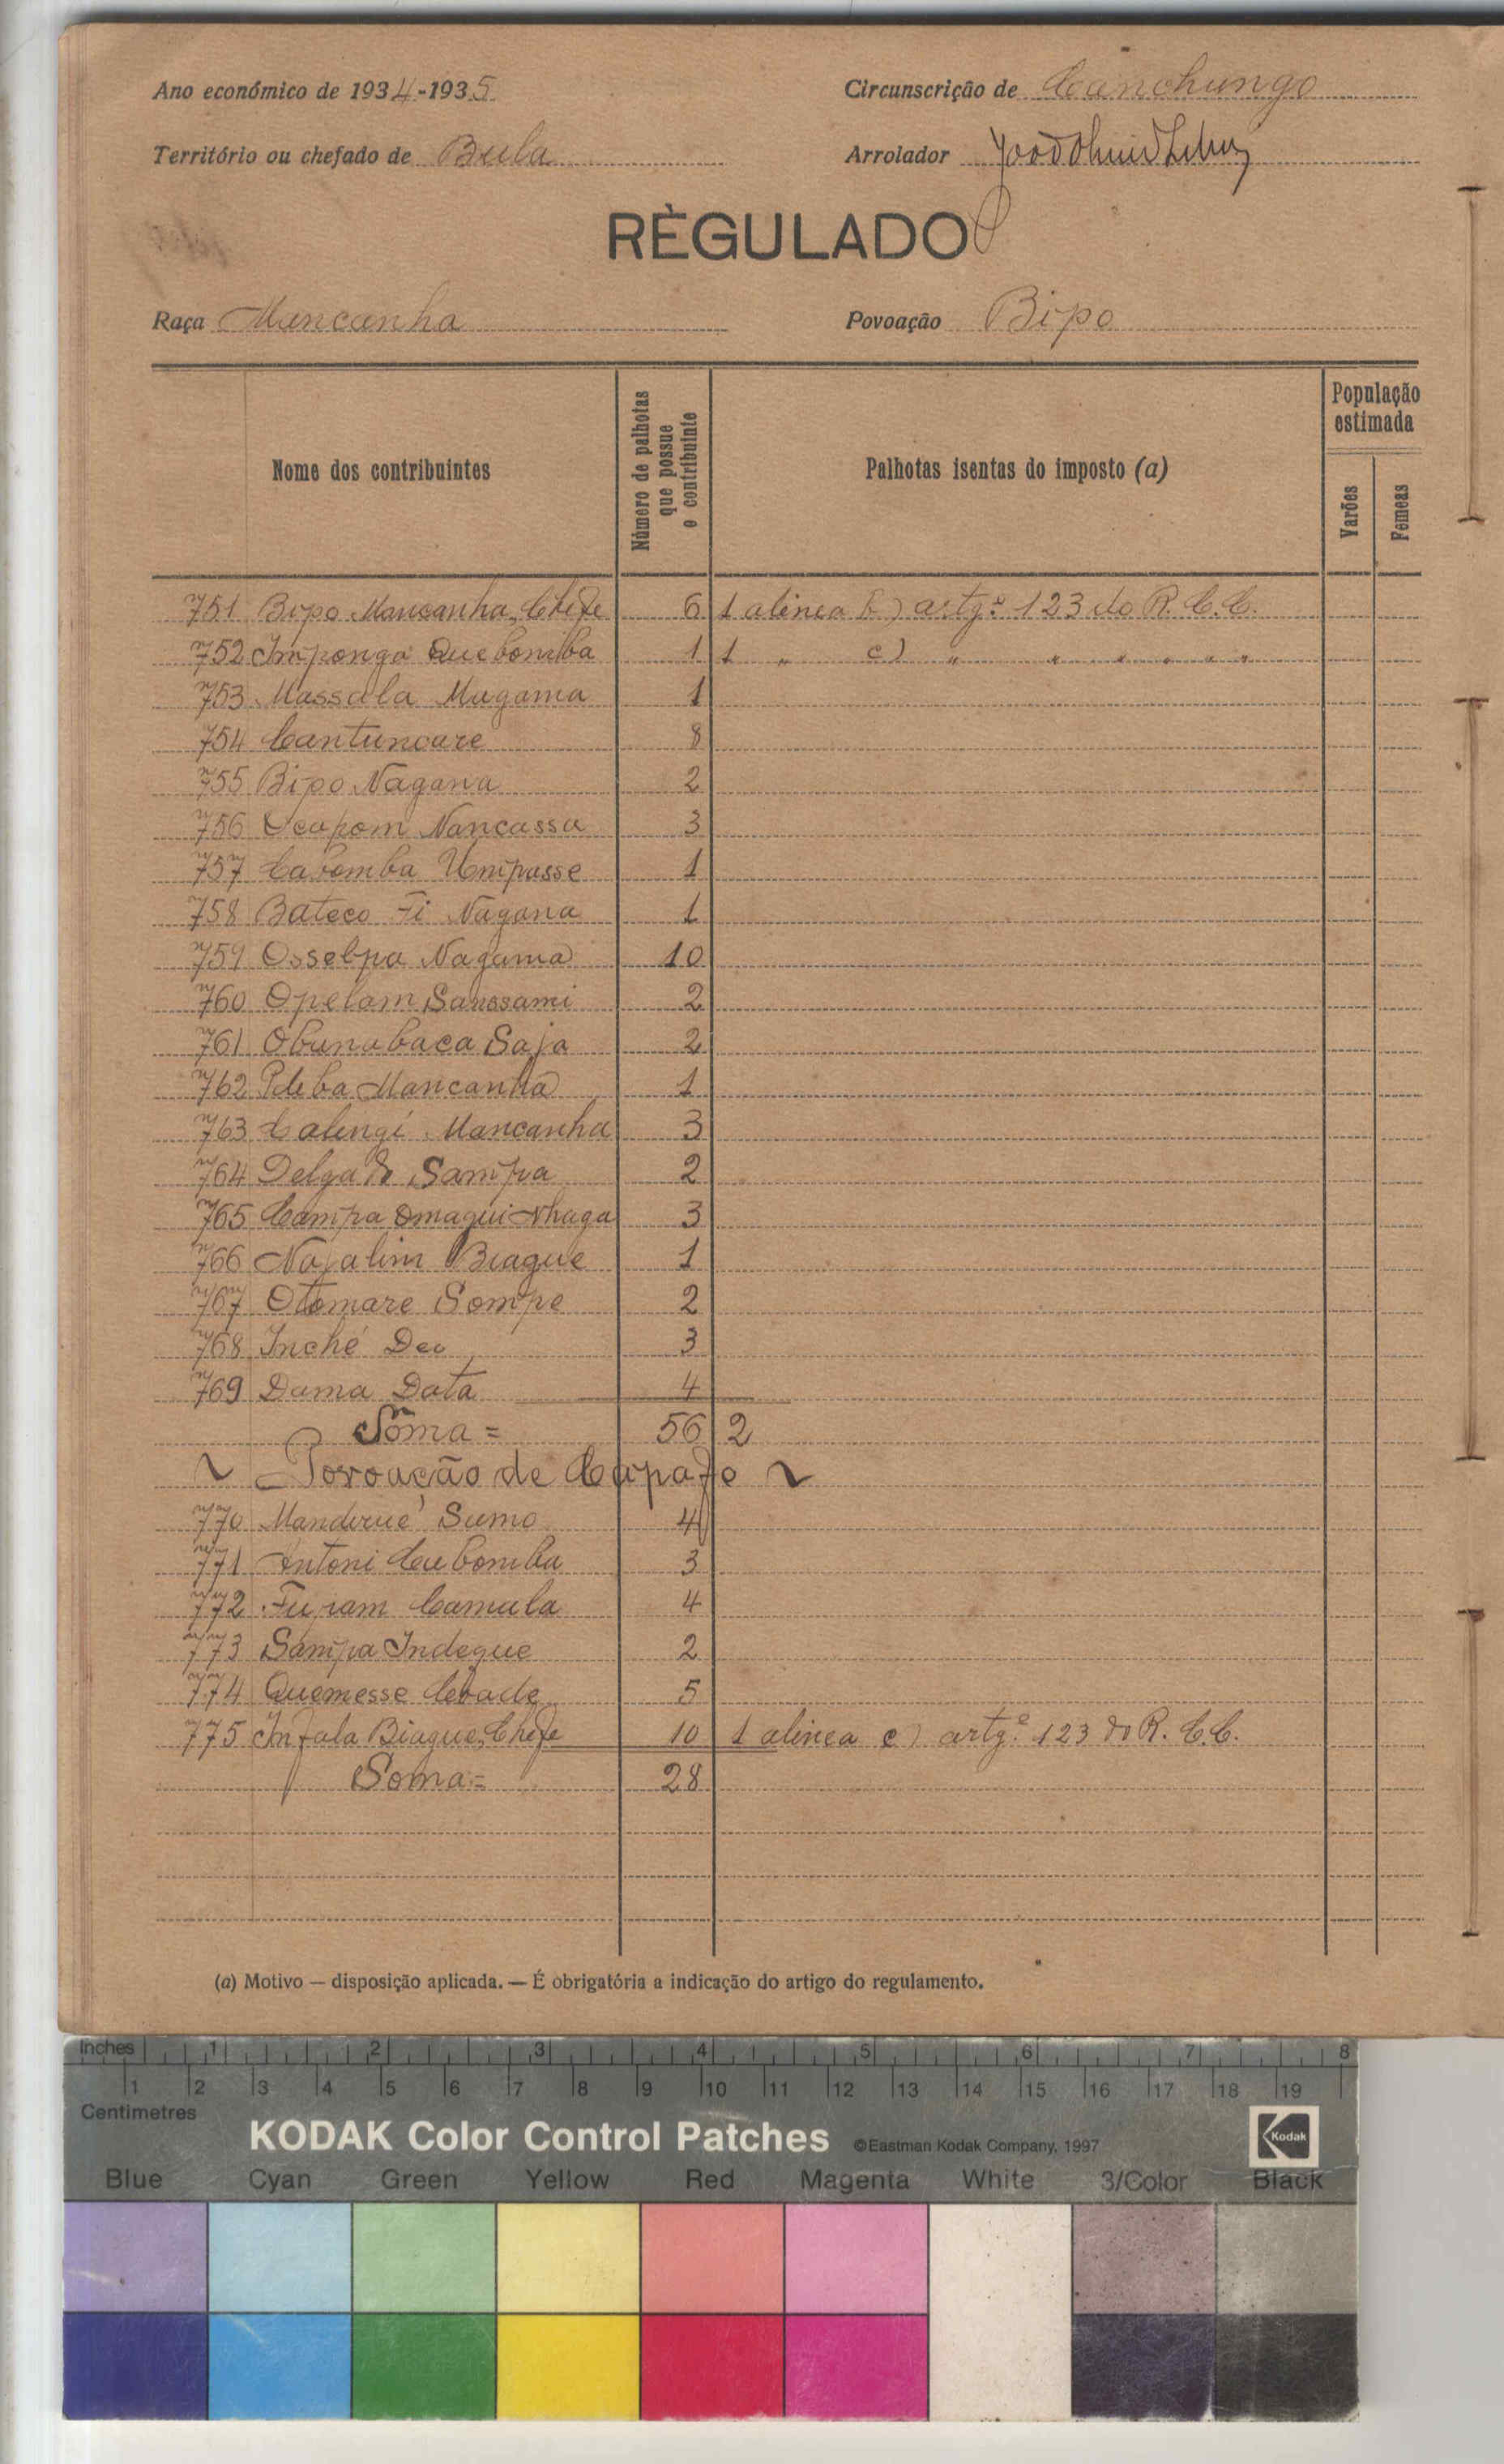 Ano económico de 1934-1935
Circunscrição de Canchungo
Território ou chefado de Bula
Arrolador
RÈGULADO
Raça Mancanha
Povoação Bipo
Nome dos contribuintes
Número de palhotas que possue o contribuinte
Palhotas isentas do imposto (a)
População estimada
Varões
Femeas
751 Bipo Mancanha, Chefe 6 1 alinea b) artgº 123 do R. C. C.
752 Imponga Quebomba 1 1 " c) " " " " " "
753 Massala Mugama 1
754 Cantuncare 8
755 Bipo Nagana 2
756 Ocapom Nancassa 3
757 Cabomba Umpasse 1
758 Bateco Fi Nagana 1
759 Osselpa Nagama 10
760 Opelam Sanssami 2
761 Obunabaca Saja 2
762 Peleba Mancanha 1
763 Calengi Mancanha 3
764 Delgado Sampa 2
765 Campa Omagui Nhaga 3
766 Najalim Biague 1
767 Otomare Sompe 2
768 Inché Deo 3
769 Dama Data 4
Sôma = 56 2
Povoação de Capafe
770 Manderué Sumo 4
771 Antoni Cubomba 3
772 Furam Camula 4
773 Sampa Indeque 2
774 Quemesse Cobade 5
775 Infala Biague, Chefe 10 1 alinea c) artgº 123 do R. C. C.
Soma = 28
(a) Motivo — disposição aplicada. — É obrigatória a indicação do artigo do regulamento.
Inches 1 2 3 4 5 6 7 8
1 2 3 4 5 6 7 8 9 10 11 12 13 14 15 16 17 18 19
Centimetres
KODAK Color Control Patches ©Eastman Kodak Company, 1997 Kodak
Blue Cyan Green Yellow Red Magenta White 3/Color Black